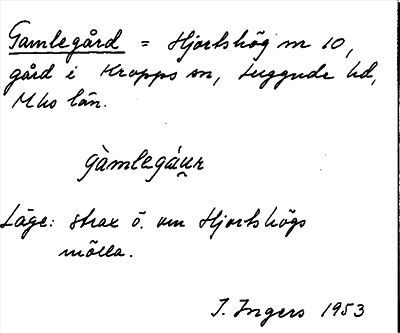 Gamlegård = Hjortshög nr 10,
gård i Kropps sn, Luggude hd,
Mhs län.
gàmlegáu̯r
Läge: strax ö. om Hjortshögs
mölla.
I. Ingers 1953